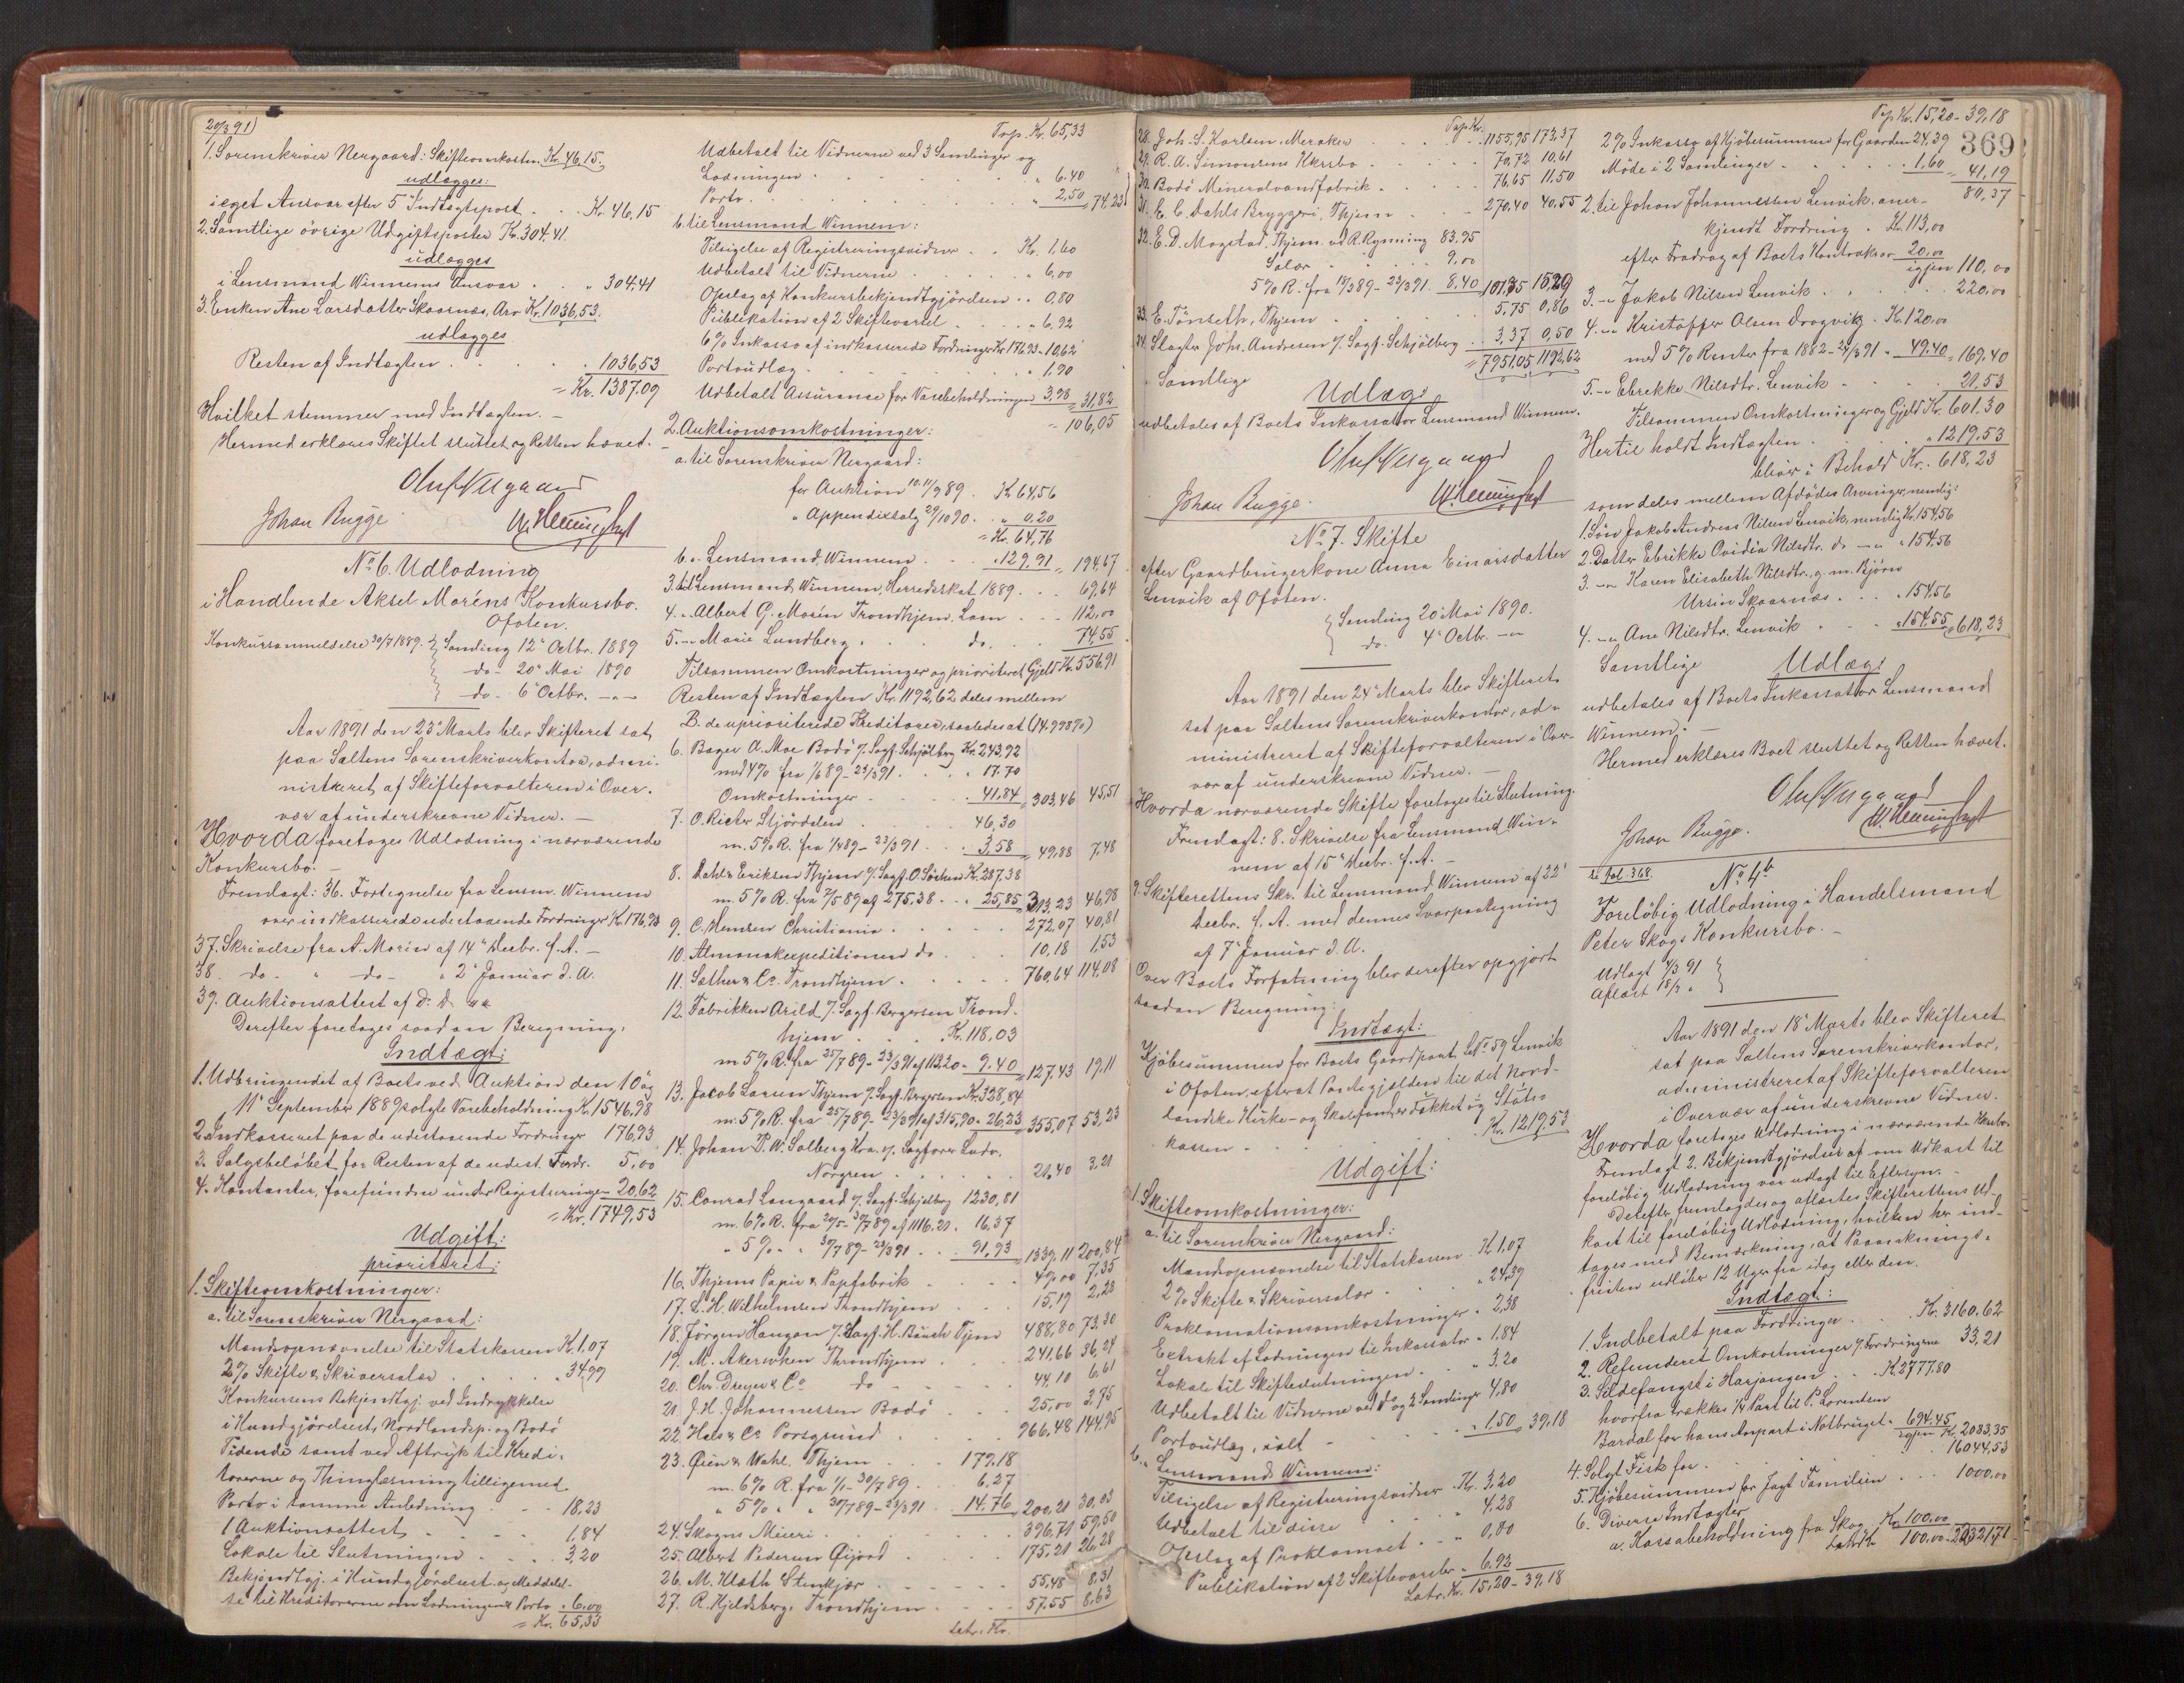 20/3 91)
1. Sorenskriver Nergaard: Skifteomkostn. Kr. 46,15.
udlægges:
i eget Ansvar efter 5te Indtægtspost . . Kr. 46,15
2. Samtlige övrige Udgiftsposter Kr. 304.41.
udlægges
i Lensmand Winnems Ansvar . . " 304,41
3. Enken Ane Larsdatter Skaarnæs, Arv Kr. 1036,53.
udlægges
Resten af Indtægten . . . . 1036,53
= Kr. 1387.09
Hvilket stemmer med Indtægten. –
Hermed erklæres Skiftet sluttet og Retten hævet. –
Oluf Nergaard
Johan Bugge.
No 6. Udlodning
i Handlende Aksel Moréns Konkursbo.
Ofoten.
Konkursanmeldelse 30/7 1889. { Samling 12te Octbr. 1889
do - 20de Mai 1890
do - 6te Octbr. -"-
Aar 1891 den 23de Marts blev Skifteret sat
paa Saltens Sorenskriverkontor, admi-
nistreret af Skifteforvalteren i Over-
vær af underskrevne Vidner. –
Hvorda foretoges Udlodning i nærværende
Konkursbo. –
Fremlagt: 36. Fortegnelse fra Lensm. Winnem
over indkasserede udestaaende Fordringer Kr. 176,93
37. Skrivelse fra A. Morén af 14de Decbr. f. A. –
38. do - " do - " 2de Januar d. A.
39. Auktionsattest af D. D. "
Derefter foretoges saadan Beregning:
Indtægt:
1. Udbringendet af Boets ved Auktion den 10de og
11te September 1889 solgte Varebeholdning Kr. 1546,98
2. Indkasseret paa de udestaaende Fordringer 176,93
3. Salgsbelöbet for Resten af de udest. Fordr. 5,00
4. Kontanter, forefundne under Registreringen 20,62
= Kr. 1749,53
Udgift:
prioriteret:
1. Skifteomkostninger:
a. til Sorenskriver Nergaard:
Mandsopnævnelse til Statskassen Kr. 1,07
2% Skifte & Skriversalær . . . " 34,99
Konkursens Bekjendtgj. ved Indrykkelse
i Kundgjörelsest., Nordlandsp. og Bodö
Tidende samt ved Aftryk til Kredi-
torerne og Thinglæsning tilligemed
Porto i samme Anledning . . 18,23
1 Auktionsattest . . . 1,84
Lokale til Slutningen . . . 3,20
Bekjendtgj. i Kundgjörelsest. og Meddelel-
se til Kreditorerne om Lodningen & Porto " 6,00
= Kr. 65,33
Trsp. Kr. 65,33
Udbetalt til Vidnerne ved 3 Samlinger og
Lodningen . . . . . " 6.40
Porto . . . . . . " 2,50 = 74.23
b. til Lensmand Winnem:
Tilsigelse af Registreringsvidner . . Kr. 1,60
Udbetalt til Vidnerne . . . . " 6,00
Opslag af Konkursbekjendtgjörelsen . . 0,80
Publikation af 2 Skiftevarsel . . . " 6,92
6% Inkasso af indkasserede Fordringer Kr. 176.93 - 10,62
Portoudlæg . . . . . . " 1,90
Udbetalt Assurance for Varebeholdningen 3,98 = 31,82
= 106,05
2. Auktionsomkostninger:
a. til Sorenskriver Nergaard:
for Auktion 10-11/9 89 . Kr. 64,56
" Appendixsalg 29/10 90 . . " 0.20
= Kr. 64,76
b. " Lensmand Winnem . . . " 129.91 = 194,67
3. til Lensmand Winnem, Herredsskat 1889 . . . 69,64
4. " Albert G. Morén Trondhjem, Löen . . . 112,00
5. -"- Marie Lundberg . . do. . . 74.55
Tilsammen Omkostninger og prioriteret Gjeld Kr. 556.91
Resten af Indtægten Kr. 1192,62 deles mellem
B. de uprioriterede Kreditorer, saaledes at (14.998%)
6. Bager A. Moe Bodö v/ Sagf. Schjölberg Kr. 243,92
med 4% fra 1/6 89 - 23/3 91 . . " 17.70
Omkostninger . . . . . 41,84 = 303,46 45,51
7. O. Richter Stjördalen . . . 46,30
m. 5% R. fra 1/4 89 - 23/3 91 . . 3,58 = 49,88 7,48
8. Dahl & Eriksen Thjem v/ Sagf. O. Sörhen Kr. 287.38
m. 5% R. fra 7/5 89 af 275,38 . . " 25,85 = 313,23 46,98
9. C. Hemsen Christiania . . . . . 272.07 40,81
10. Almanakexpeditionen do . . . 10,18 1,53
11. Sæther & Co. Trondhjem . . . . 760,64 114,08
12. Fabrikken Arild v/ Sagf. Bergersen Trond-
hjem . . . . Kr. 118,03
m 5% R. fra 25/7 89 - 23/3 91 af 113.20 - 9.40 = 127.43 19,11
13. Jacob Larsen Thjem v/ Sagf. Bergersen Kr. 328,84
m. 5% R. fra 25/7 89 - 23/3 91 af 315,90 - 26,23 = 355,07 53,23
14. Johan P. W. Solberg Kra. v/ Sagförer Ludv.
Norgren . . . . . 21,40 3,21
15. Conrad Langaard v/ Sagf. Schjölberg 1230,81
m. 6% R. fra 20/5 - 30/7 89 af 1116.20 . 16,37
" 5% - " 30/7 89 - 23/3 91 . . . 91,93 = 1339.11 200,84
16. Thjems Papir & Papfabrik . . . . 49,00 7,35
17. L. H. Wilhelmsen Trondhjem . . . 15,19 2,28
18. Jörgen Haugan v/ Sagf. H. Bauck Tjem 488,80 73,30
19. M. Akerwhen Throndhjem . . . 241,66 36,24
20. Chr. Dreyer & Co do - . . . 44.10 6.61
21. J. H. Johannessen Bodö . . . 25,00 3,75
22. Hals & Co Porsgrund . . . . 966,48 144.95
23. Öien & Wahl Thjem . . . 179,18
m. 6% R. fra 1/1 - 30/7 89 . . . 6,27
" 5% " " 30/7 89 - 23/3 91 . 14.76 = 200,21 30,03
24. Skogns Mieeri . . . . . 396,71 59,50
25. Albert Pedersen Öijord . . . 175,21 26,28
26. M. Klæth Stenkjær . . . . 55,48 8,31
27. R. Kjeldsberg, Trondhjem . . . 57,55 8,63
Latr. Kr.
Trsp. Kr.
28. Joh. S. Karlsen, Meraker . . . 1155,95 173,37
29. R. A. Simonsens Kkrsbo . . . . 70,72 10,61
30. Bodö Mineralvandfabrik . . . . 76,65 11,50
31. E. C. Dahls Bryggeri, Thjem . . . 270,40 40,55
32. E. D. Magstad, Thjem. vd R. Rynning 83,95
Salær . . . . 9,00
5% R. fra 19/3 89 - 23/3 91. 8,40 101,35 15,29
33. E. Tönseth, Thjem . . . . . 5,75 0,86
34. Slagter Johs. Andresen v/ Sagf. Schjölberg . . 3,37 0,50
= 7951.05 1192,62
Samtlige
Udlæg:
udbetales af Boets Inkassator Lensmand Winnem.
Oluf Nergaard
Johan Bugge.
No 7. Skifte
efter Gaardbrugerkone Anna Einarsdatter
Lenvik af Ofoten.
{ Samling 20de Mai 1890.
do. 4de Octbr. -"-
Aar 1891 den 24de Marts blev Skifteret
sat paa Saltens Sorenskriverkontor, ad-
ministreret af Skifteforvalteren i Over-
vær af underskrevne Vidner. –
Hvorda nærværende Skifte foretoges til Slutning.
Fremlagt: 8. Skrivelse fra Lensmand Win-
nem af 15de Decbr. f. A. –
9. Skifterettens Skr. til Lensmand Winnem af 22de
Decbr. f. A. med dennes Svarpaategning
af 7de Januar d. A.
Over Boets Forfatning blev derefter opgjort
saadan Beregning:
Indtægt:
Kjöbesummen for Boets Gaardpart, L.No 59 Lenvik
i Ofoten, efterat Pantegjelden til det Nord-
landske Kirke- og Skolefond er Fakket og Stöts-
kassen - . . . Kr. 1219,53
Udgift:
1. Skifteomkostninger:
a. til Sorenskriver Nergaard:
Mandsopnævnelse til Statskassen . Kr. 1,07
2% Skifte & Skriversalær . . . " 24,39
Proklamationsomkostninger . " 2,38
Extrakt af Lodningen til Inkassator " 1.84
Lokale til Skifteslutningen . . . " 3.20
Udbetalt til Vidnerne ved 1 og 2 Samlinger 4,80
Portoudlæg, ialt - . . . . " 1.50 = 39,18
b. " Lensmand Winnem:
Tilsigelse af Registreringsvidner . Kr. 3,20
Udbetalt til disse . . . " 4,28
Opslag af Proklamaet . . - " 0,80
Publikation af 2 Skiftevarsler - 6,92
Latr. Kr. 15,20 - 39,18
Trsp. Kr. 15,20 - 39,18
369
2% Inkasso af Kjöbesummen for Gaarden 24,39
Möde i 2 Samlinger . . . . 1,60 = 41,19
80,37
2. til Johan Johannessen Lenvik, aner-
kjendt Fordring . Kr. 113,00
efter Fradrag af Boets Kontrakrav 20,00
igjen 110,00
3. -"- Jakob Nilsen Lenvik . . . . 220,00
4. -"- Kristoffer Olsen Dragvik . Kr. 120,00
med 5% Renter fra 1882 - 24/3 91 " 49.40 = 169,40
5. -"- Ebrekke Nilsdtr. Lenvik . . . . 21,53
Tilsammen Omkostninger og Gjeld Kr. 601,30
Hertil holdt Indtægten . . . . " 1219,53
bliver i Behold Kr. 618,23
som deles mellem Afdödes Arvinger, nemlig:
1. Sön Jakob Andreas Nilsen Lenvik, nemlig Kr. 154,56
2. Datter Ebrikke Ovidia Nilsdtr. do -"- " 154,56
3. -"- Karen Elisabeth Nilsdtr., g. m. Björn
Ursin Skaarnæs . . . . " 154,56
4. -"- Ane Nilsdtr. Lenvik . . . " 154,55 = 618,23
Samtlige Udlæg:
udbetales af Boets Inkassator Lensmand
Winnem. –
Hermed erklæres Boet sluttet og Retten hævet. –
Oluf Nergaard
Johan Bugge.
se Fol. 368.
No 4b
Foreløbig Udlodning i Handelsmand
Peter Skogs Konkursbo. –
Udlagt 4/3 91 }
Aflæst 18/3 " }
Aar 1891 den 18de Marts blev Skifteret
sat paa Saltens Sorenskriverkontor,
administreret af Skifteforvalteren
i Overvær af underskrevne Vidner.
Hvorda foretoges Udlodning i nærværende Kkrsbo.
Fremlagt 2. Bekjendtgjörelser af om Udkast til
foreløbig Udlodning var udlagt til Eftersyn. –
Derefter fremlagdes og aflæstes Skifterettens Ud-
kast til foreløbig Udlodning, hvilken her ind-
tages med Bemærkning, at Paaanknings-
fristen udlöber 12 Uger fra idag eller den.
Indtægt:
1. Indbetalt paa Fordringer . . . Kr. 3160.62
2. Refunderet Omkostninger v/ Fordringerne 33,21
3. Sildefangst i Harjangen . . . Kr. 2777.80
hvorfra trækkes 1/4 Part til P. Lorentsen
Bardal for hans Anpart i Notbruget " 694.45
igjen Kr. 2083,35
4. Solgt Fisk for . . . . . 16044,53
5. Kjöbesummen for Jagt Familien . . . 1000,00
6. Diverse Indtægter
a. Kassabeholdning fra Skog Kr. 100,00
Latr. Kr. 100,00 - 22321,71